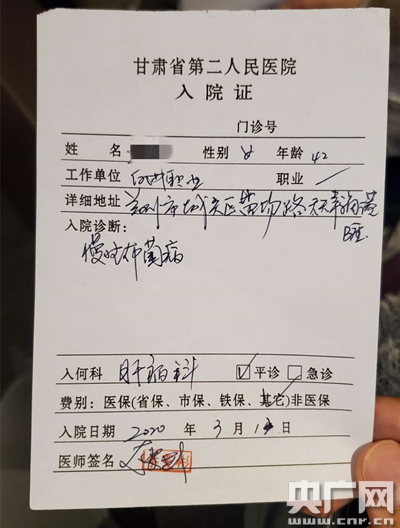 甘肃省第二人民医院
入院证
门诊号
姓名 性别 女 年龄 42
工作单位 职业 /
详细地址 兰州市城关区
入院诊断：
慢性布菌病
入何科 肝病科 ☑平诊 □急诊
费别：医保(省保、市保、铁保、其它)非医保
入院日期 2020 年 3 月 日
医师签名
央广网
www.cnr.cn